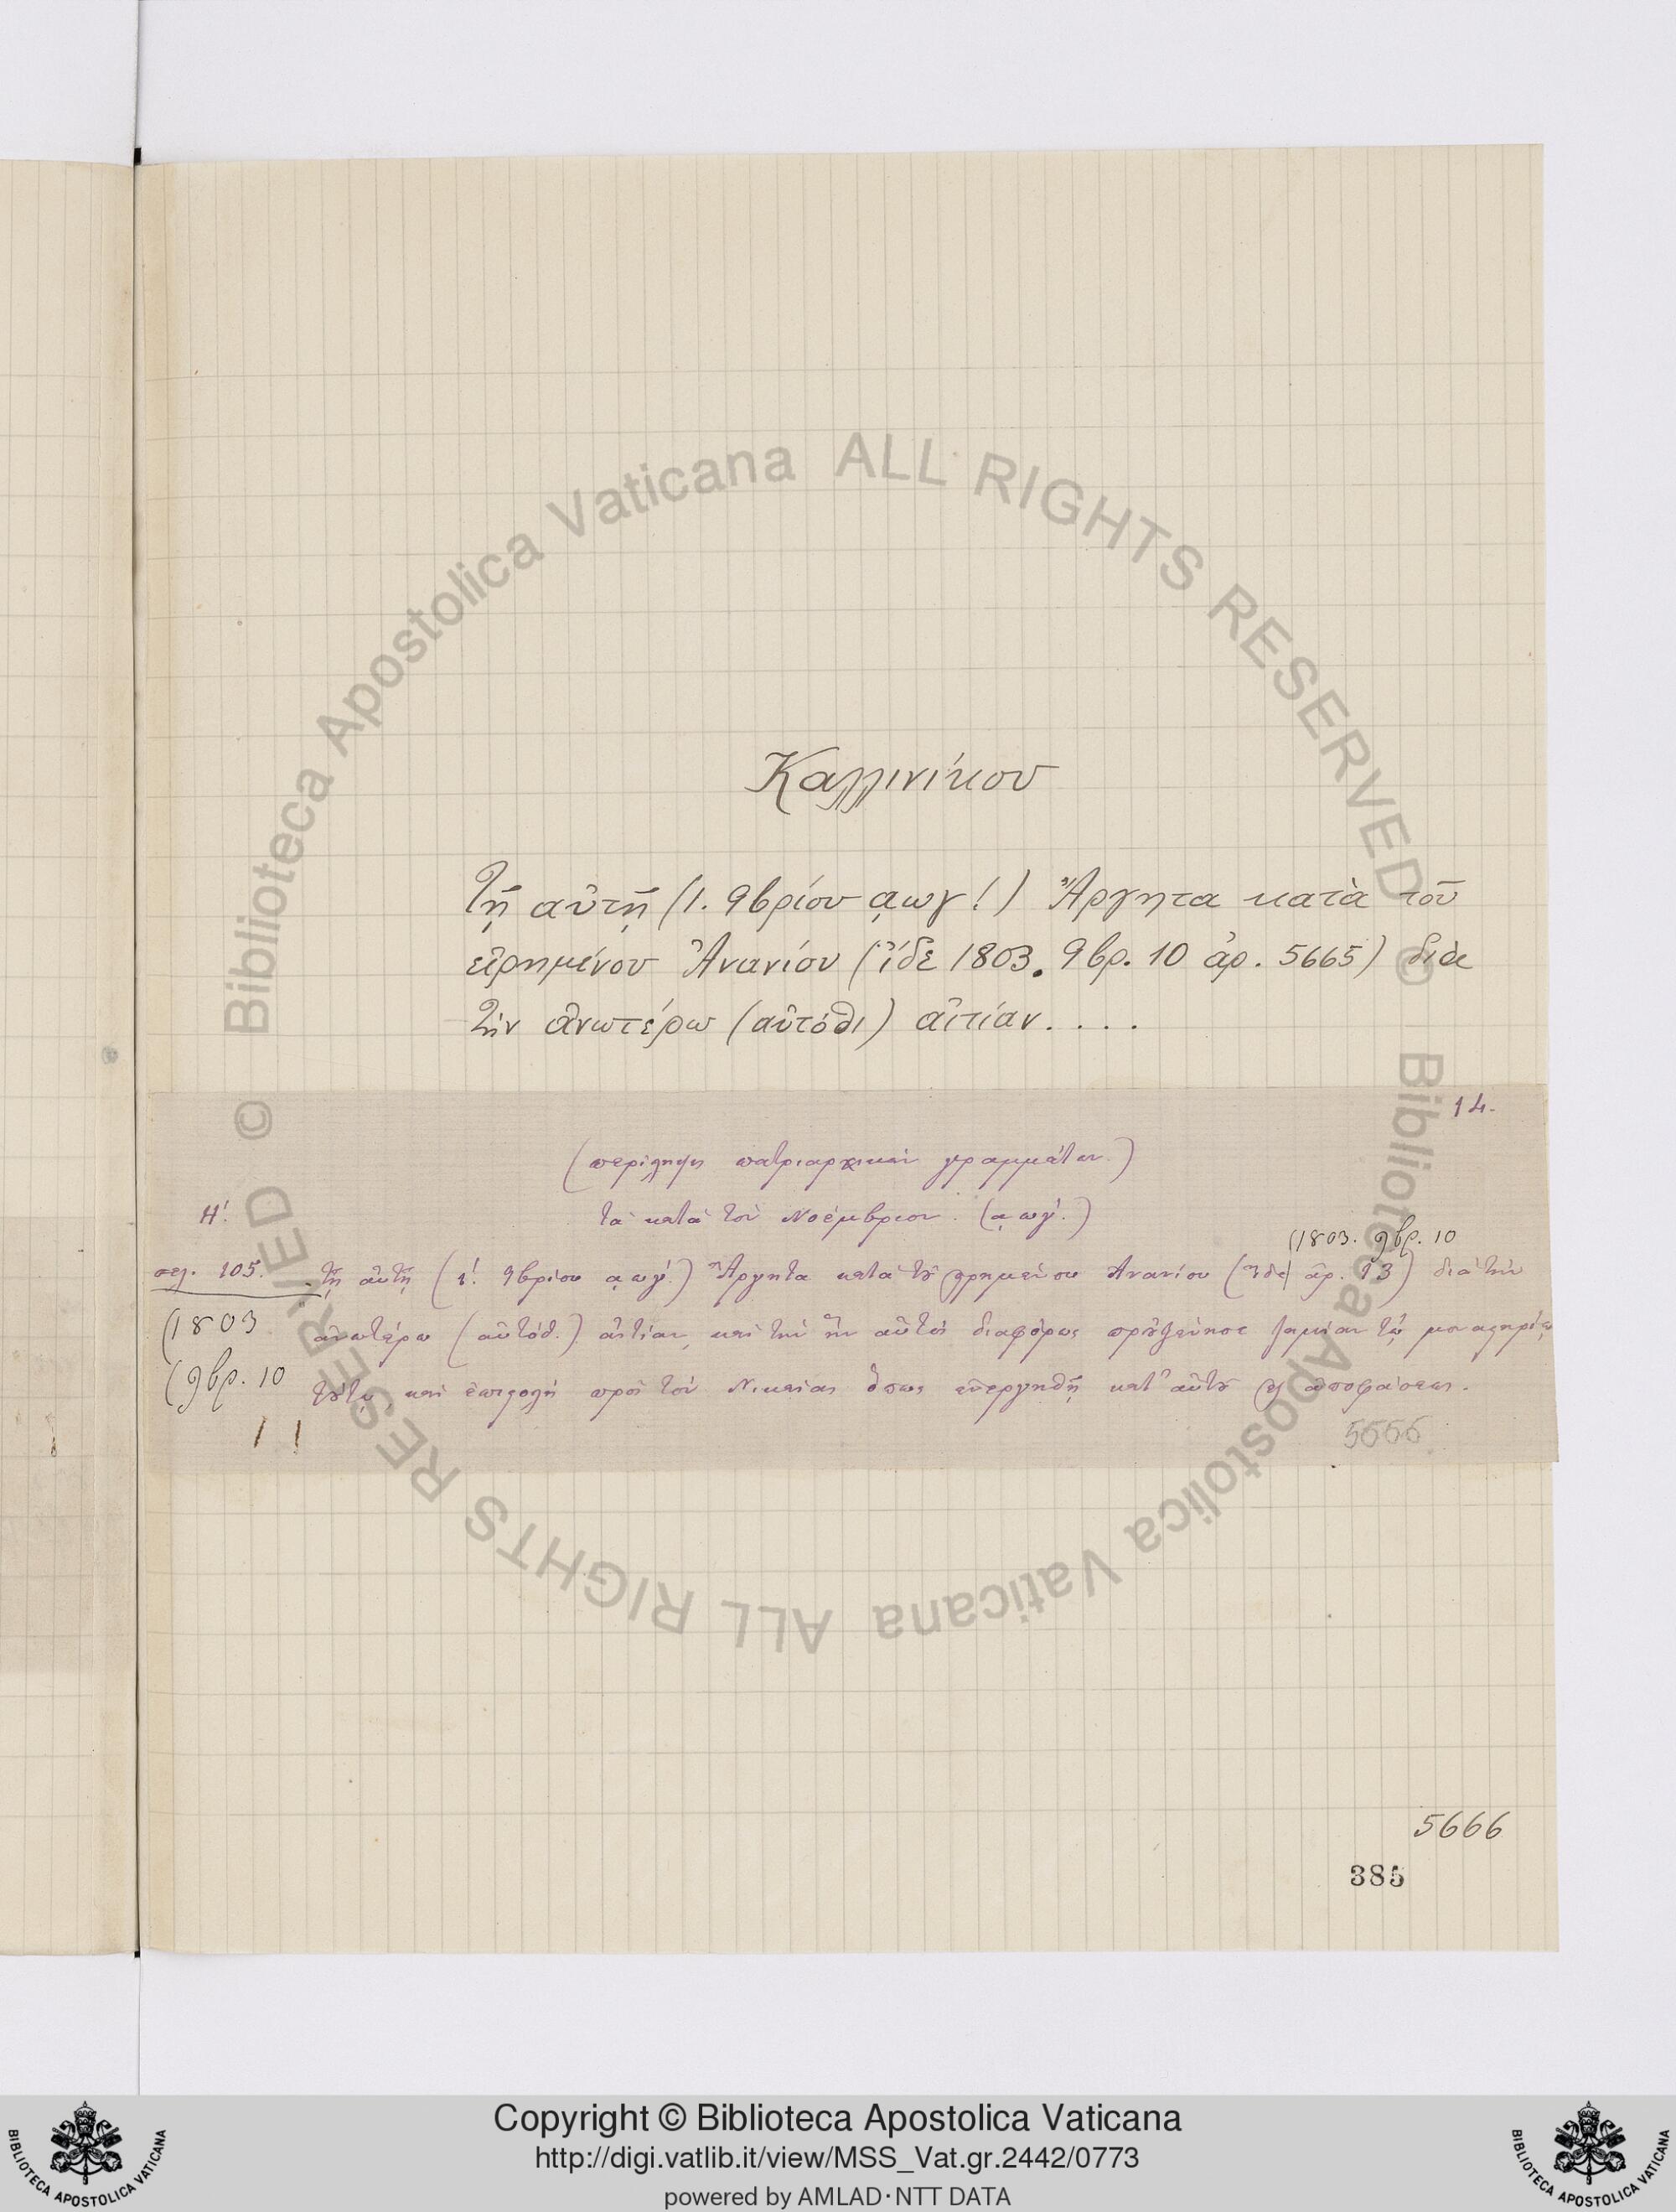 Καλλινίκου
Τῇ αὐτῇ (1. 9βρίου ͵αωγʹ.) Ἄργητα κατὰ τοῦ
εἰρημένου Ἀνανίου (ἴδε 1803. 9βρ. 10 ἀρ. 5665) διὰ
τὴν ἀνωτέρω (αὐτόθι) αἰτίαν. . . .
14.
(περίληψις πατριαρχικῶν γραμμάτων.)
Η΄. τὰ κατὰ τὸν Νοέμβριον. (͵αωγ΄.)
(1803. 9βρ. 10
σελ. 105. τῇ αὐτῇ (ι΄. 9βρίου ͵αωγ΄.) Ἄργητα κατὰ τοῦ εἰρημένου Ἀνανίου (ἴδε ἀρ. 13) διὰ τὴν
(1803 ἀνωτέρω (αὐτόθ.) αἰτίαν, καὶ τὴν ἣν αὐτὸς διαφόρως προὐξένησε ζημίαν τῷ μοναστηρίῳ
(9βρ. 10 τούτῳ, καὶ ἐπιστολὴ πρὸς τὸν Νικαίας ὅπως ἐνεργηθῇ κατ' αὐτοῦ ἡ ἀπόφασις.
11
5666
5666
385
Biblioteca Apostolica Vaticana ALL RIGHTS RESERVED ©
Biblioteca Apostolica Vaticana ALL RIGHTS RESERVED ©
BIBLIOTECA APOSTOLICA VATICANA
Copyright © Biblioteca Apostolica Vaticana
http://digi.vatlib.it/view/MSS_Vat.gr.2442/0773
powered by AMLAD·NTT DATA
BIBLIOTECA APOSTOLICA VATICANA